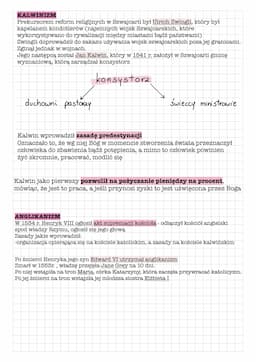 KALWINIZM
Prekursorem reform religijnych w Szwajcarii był Ulrich Zwingli, który był
kapelanem kondotierów (najemnych wojsk szwajcarskich, które
wykorzystywano do rywalizacji między miastami bądź państwami)
Zwingli doprowadził do zakazu używania wojsk szwajcarskich poza jej granicami.
Zginął jednak w wojnach.
Jego następcą został Jan Kalwin, który w 1541 r. założył w Szwajcarii gminę
wyznaniową, którą zarządzał konsystorz
konsystorz
duchowni pastorzy
świeccy ministrowie
Kalwin wprowadził zasadę predestynacji
Oznaczało to, że wg niej Bóg w momencie stworzenia świata przeznaczył
człowieka do zbawienia bądź potępienia, a mimo to człowiek powinien
żyć skromnie, pracować, modlić się
Kalwin jako pierwszy pozwolił na pożyczanie pieniędzy na procent,
mówiąc, że jest to praca, a jeśli przynosi zyski to jest uświęcona przez Boga
ANGLIKANIZM
W 1534 r. Henryk VIII ogłosił akt supremacji kościoła - odłączył kościół angielski
spod władzy Rzymu, ogłosił się jego głową
Zasady jakie wprowadził:
-organizacja opierająca się na kościele katolickim, a zasady na kościele kalwińskim
Po śmierci Henryka jego syn Edward VI utrzymał anglikanizm
Zmarł w 1553r., władzę przejęła Jane Grey na 10 dni.
Po niej wstąpiła na tron Maria, córka Katarzyny, która zaczęła przywracać katolicyzm.
Po jej śmierci na tron wstąpiła jej młodsza siostra Elżbieta I